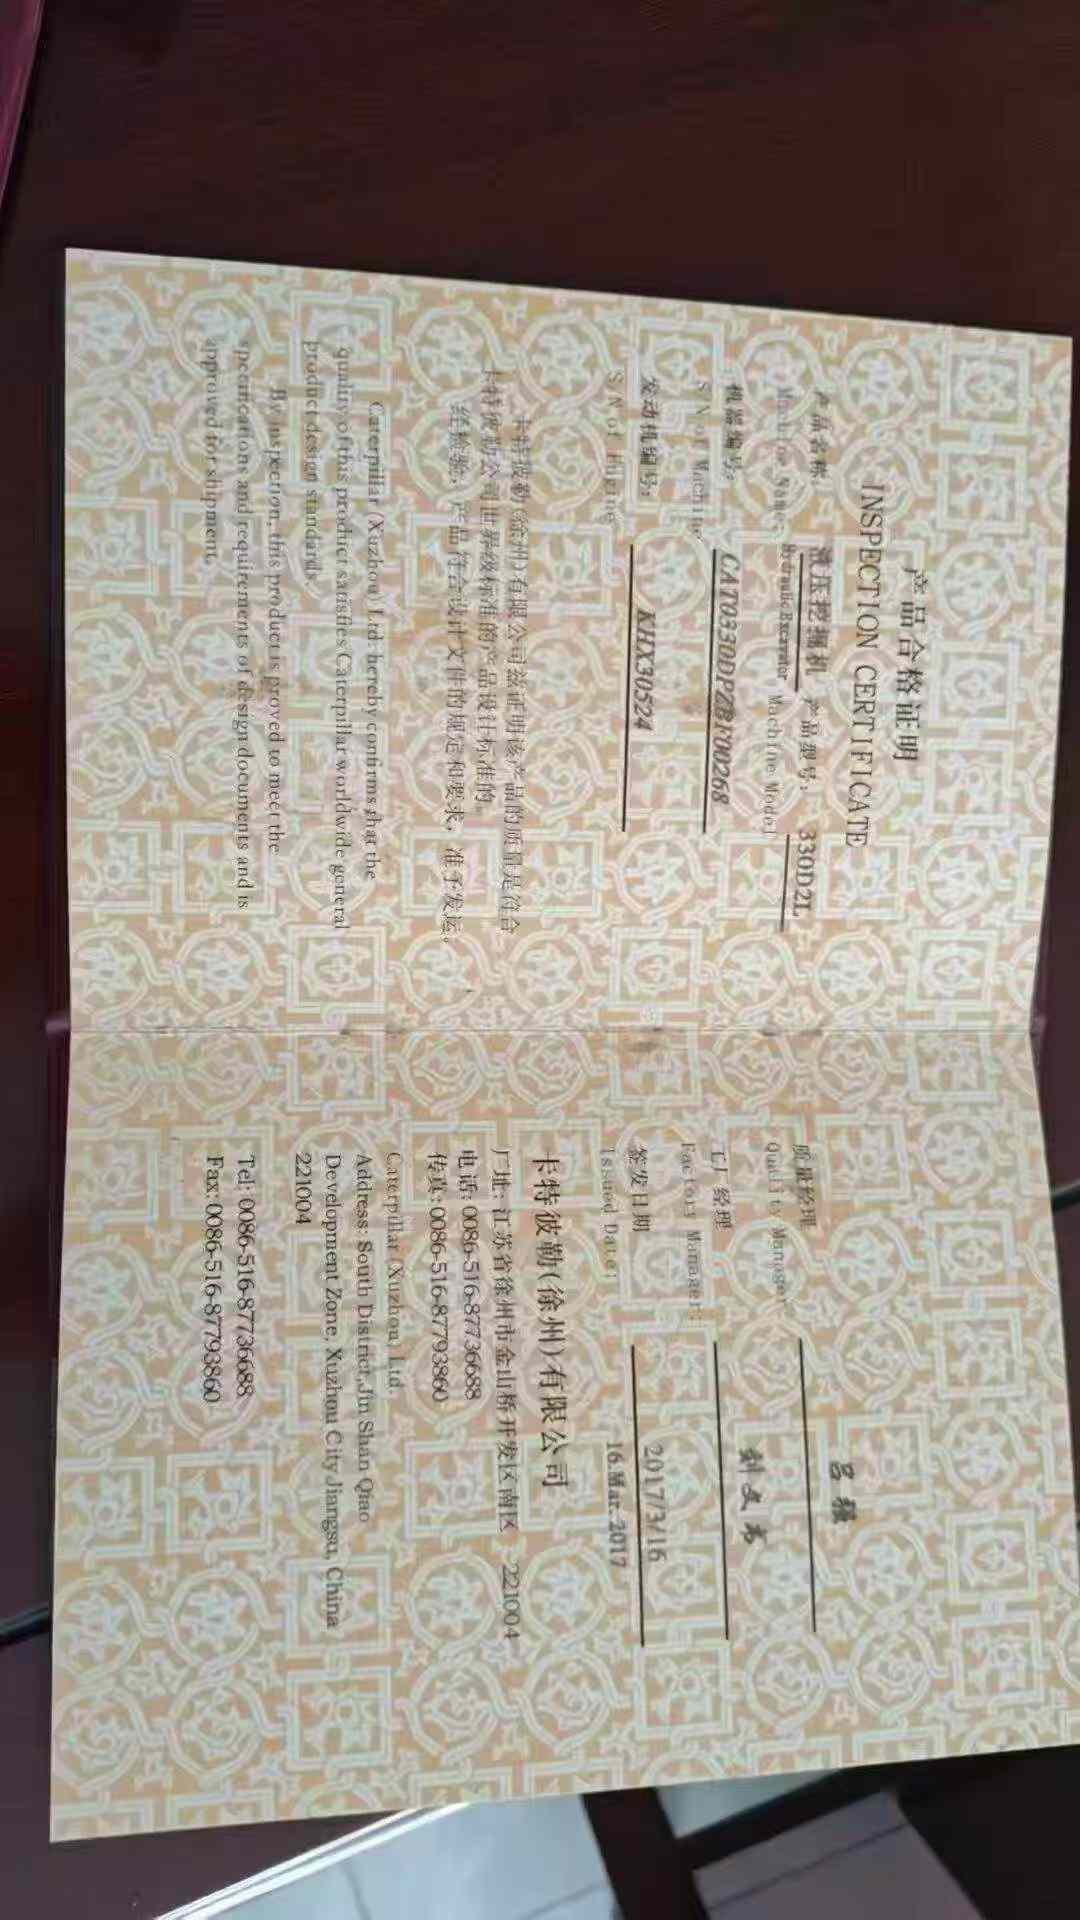 产品合格证明
INSPECTION CERTIFICATE
产品名称: 液压挖掘机 产品型号: 330D2L
Machine Name: Hydraulic Excavator Machine Model
机器编号: CAT0330DPZBF00268
S/N of Machine
发动机编号: KHX30524
S/N of Engine
卡特彼勒(徐州)有限公司兹证明该产品的质量是符合
卡特彼勒公司世界级标准的产品设计标准的
经检验, 产品符合设计文件的规定和要求, 准予发运。
Caterpillar (Xuzhou) Ltd. hereby confirms that the
quality of this product satisfies Caterpillar worldwide general
product design standards.
By inspection, this product is proved to meet the
specifications and requirements of design documents and is
approved for shipment.
质量经理 吕强
Quality Manager
工厂经理 文
Factory Manager:
签发日期 2017/3/16
Issued Date: 16.Mar.2017
卡特彼勒(徐州)有限公司
厂址: 江苏省徐州市金山桥开发区南区 221004
电话: 0086-516-87736688
传真: 0086-516-87793860
Caterpillar (Xuzhou) Ltd.
Address: South District, Jin Shan Qiao
Development Zone, Xuzhou City Jiangsu, China
221004
Tel: 0086-516-87736688
Fax: 0086-516-87793860